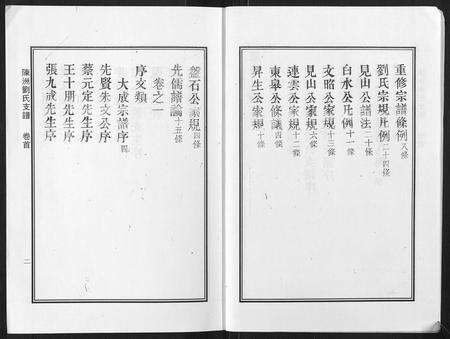 重修宗譜條例八條
劉氏宗規凡例二十四條
見山公譜法二十條
白水公凡例十一條
文昭公家規十三條
見山公家規六條
連雲公家規十二條
東皋公條議四條
昇生公家規十條
盤石公議規四條
先儒譜論十五條
卷之一
序文類
大成宗譜序四
先賢朱文公序
蔡元定先生序
王十朋先生序
張九成先生序
陳洲劉氏支譜 卷首 二